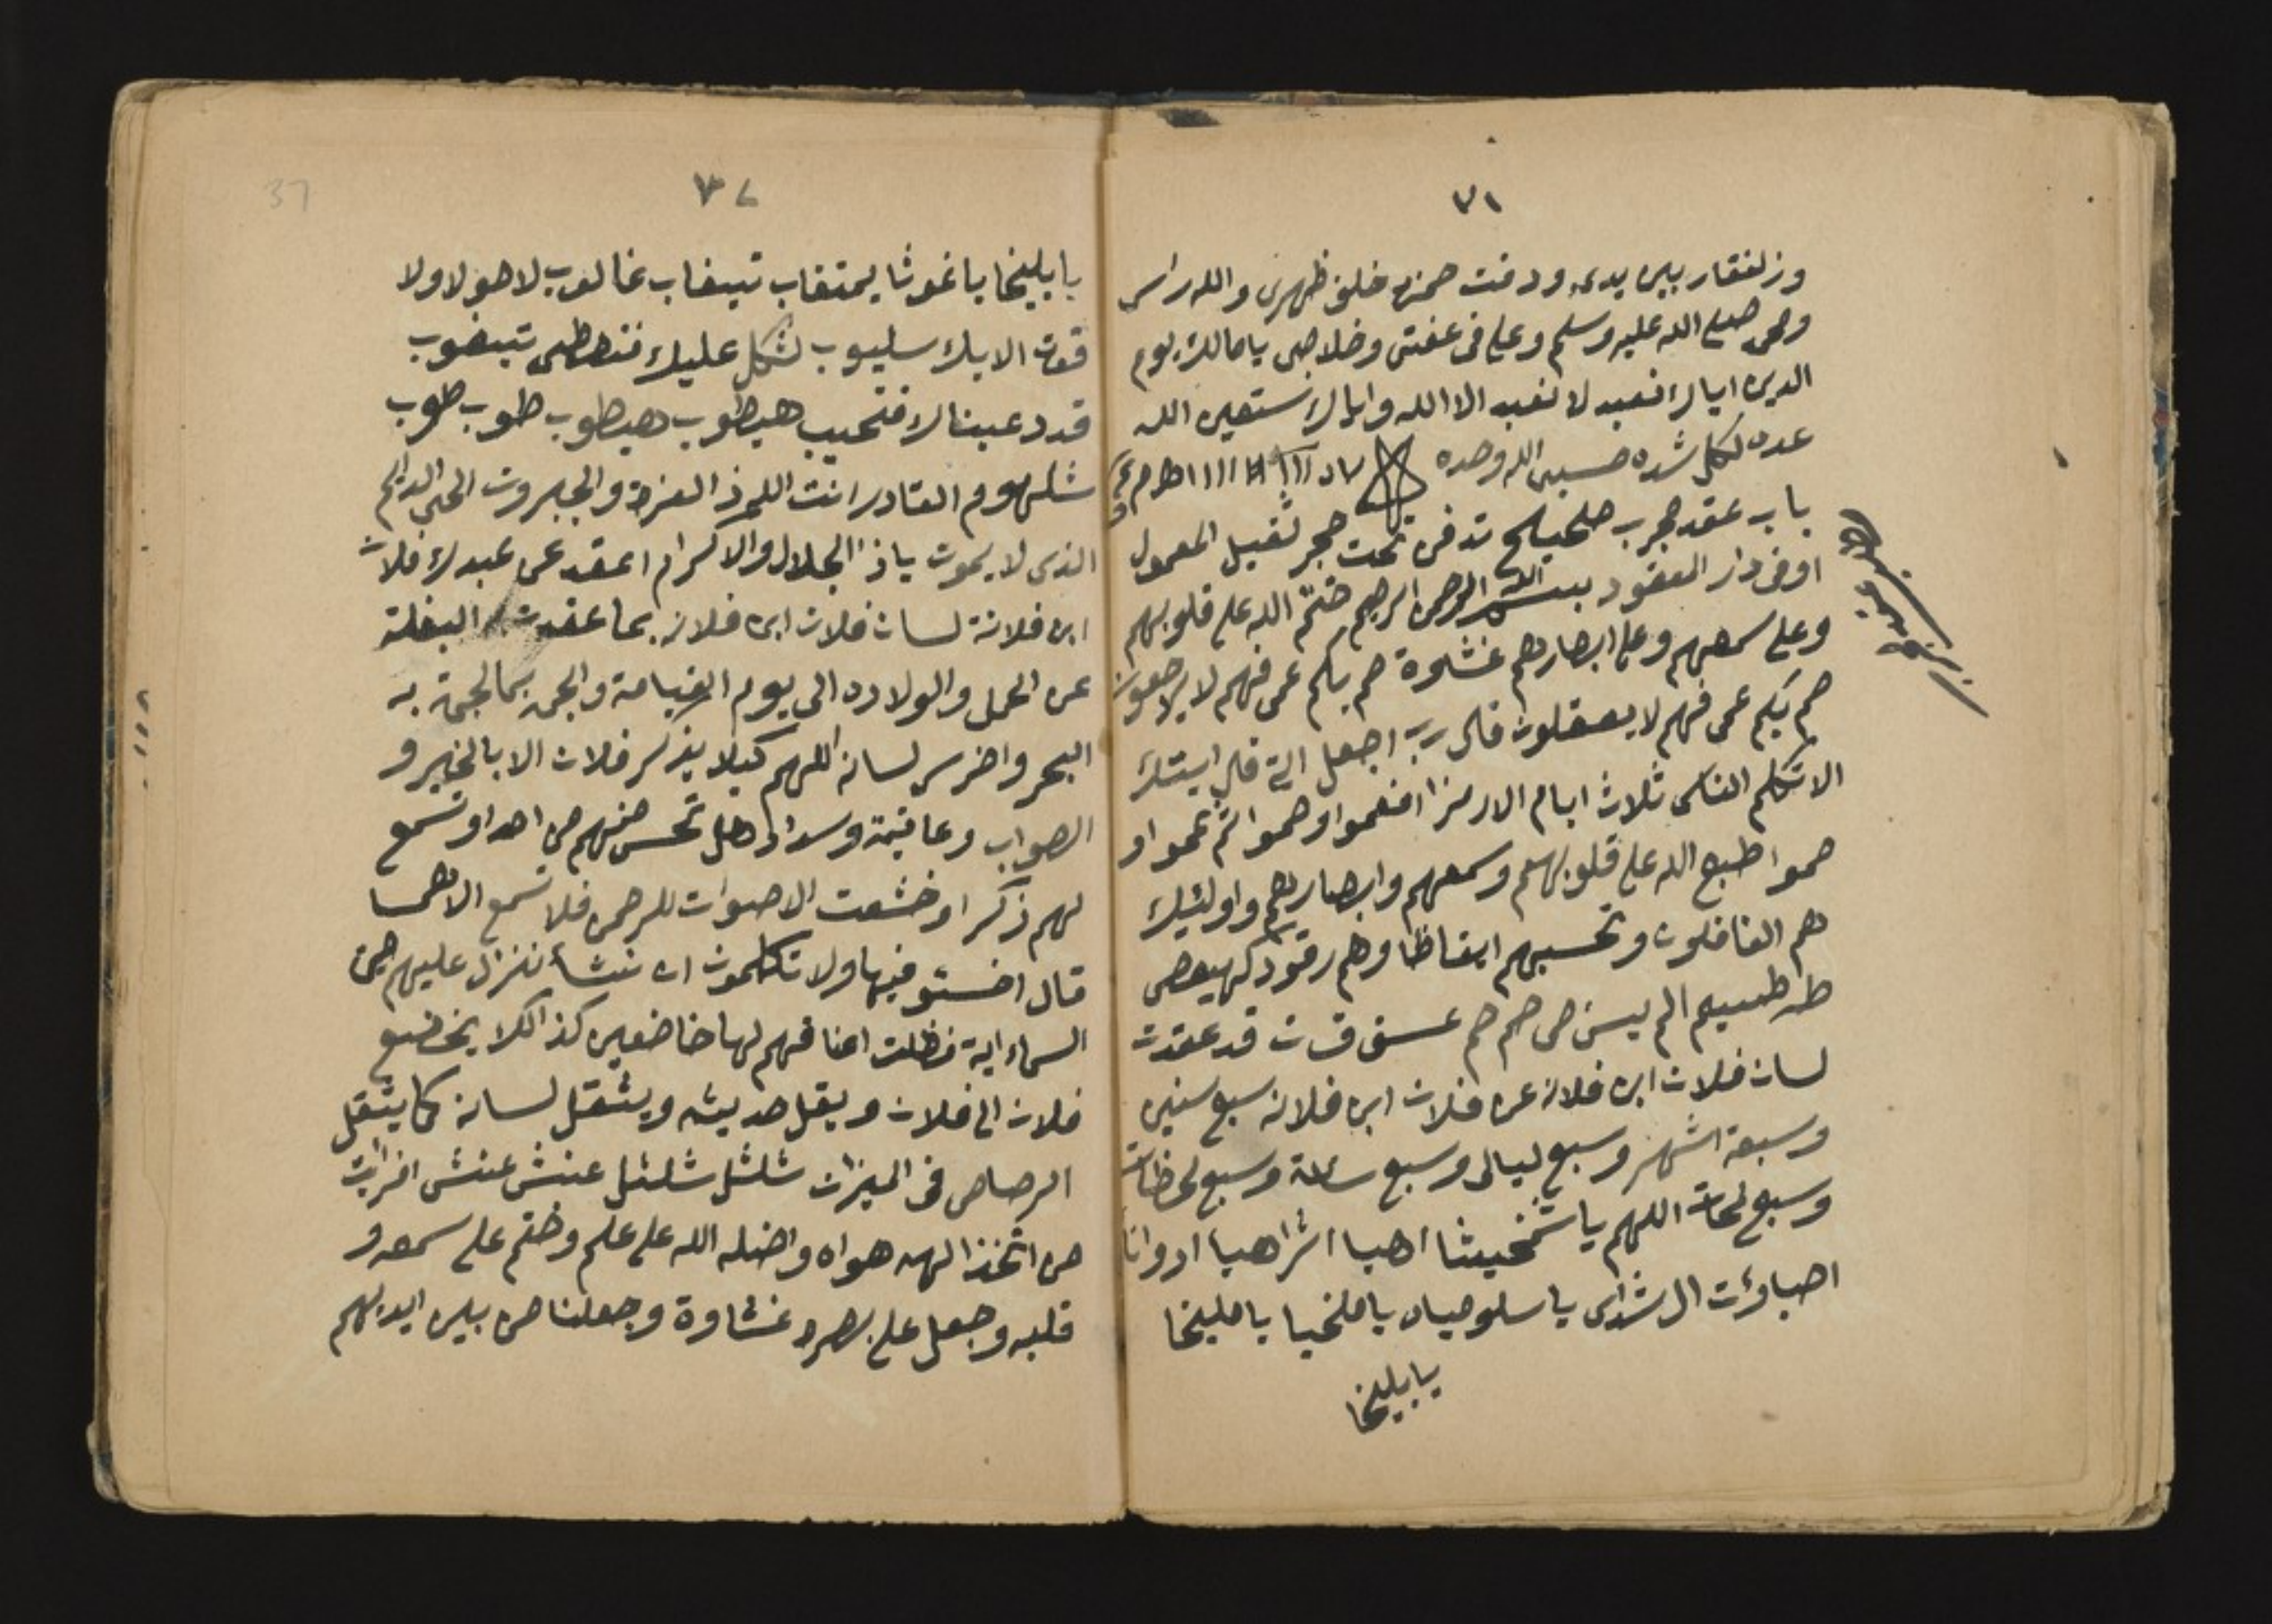 ٧١
وزلفقار بين يدي ودفت حمزة خلف ظهري والله راسي
ومحمد صلى الله عليه وسلم وعلي في عفتي وخلاصي يا مالك يوم
الدين اياك نعبد لا نعبد الا الله واياك نستعين الله
عده لكل شده حسبي الله وحده
باب عقد مجرب صحيح تدفن تحت حجر ثقيل المعمول
او في دار المعقود بسم الله الرحمن الرحيم ختم الله على قلوبهم
وعلى سمعهم وعلى ابصارهم غشوة صم بكم عمي فهم لا يرجعون
صم بكم عمي فهم لا يعقلون قال رب اجعل اية قال ايتك
الا تكلم الناس ثلاث ايام الا رمزا افعموا وصموا ثم عموا و
صموا طبع الله على قلوبهم وسمعهم وابصارهم واولئيك
هم الغافلون وتحسبهم ايقاظا وهم رقود كهيعص
طه طسيم الم يس ص حم حم عسق ق ن قد عقدت
لسان فلان ابن فلانه عن فلان ابن فلانه سبع سنين
وسبعة اشهر وسبع ليالي وسبع ساعة وسبع لحظات
وسبع لمحات اللهم يا شمخيثا اهيا اشراهيا ادواناي
اصباوت ال شداي يا سلوميا يا ملخيا يا مليخا
يا بليخا
٧٢
37
يا بليخا يا غموثا يمتقاب تيبغاب غالوب لا حولا ولا
قوت الا بك سليوب لشكل عليك فنططى تيبغوب
قدد عيناك فتحيب هيطوب هيطوب طوب طوب
شلهووم القادر انت اللهم ذ العزة والجبروت الحي الدايم
الذي لا يموت يا ذا الجلال والاكرام اعقد عن عبدك فلان
ابن فلانة لسان فلان ابن فلانه بما عقدت البغلة
عن الحمل والولاده الى يوم القيامة والجمه بما لجمة به
البحر واخرس لسانه اللهم كيلا يذكر فلان الا بالخير و
الصواب وعافية وسداد وهل تحس منهم من احد او تسمع
لهم ذكرا وخشعت الاصوات للرحمن فلا تسمع الا همسا
قال اخستو فيها ولا تكلمون ان نشأ ننزل عليهم من
السماء اية فظلت اعناقهم لها خاضعين كذالكلا يخضع
فلان الى فلان ويقل حديثه ويثقل لسانه كما يثقل
الرصاص في الميزان شلشل شلشل عنش عنش افرايت
من اتخذ الهه هواه واضله الله على علم وختم على سمعه و
قلبه وجعل على بصره غشاوة وجعلنا من بين ايديهم